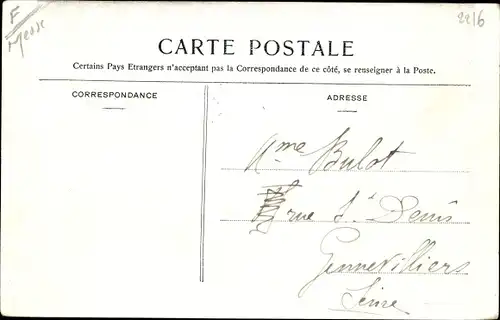 F
Messe
2216
CARTE POSTALE
Certains Pays Etrangers n'acceptant pas la Correspondance de ce côté, se renseigner à la Poste.
CORRESPONDANCE
ADRESSE
Mme Bulot
rue St Denis
Gennevilliers
Seine